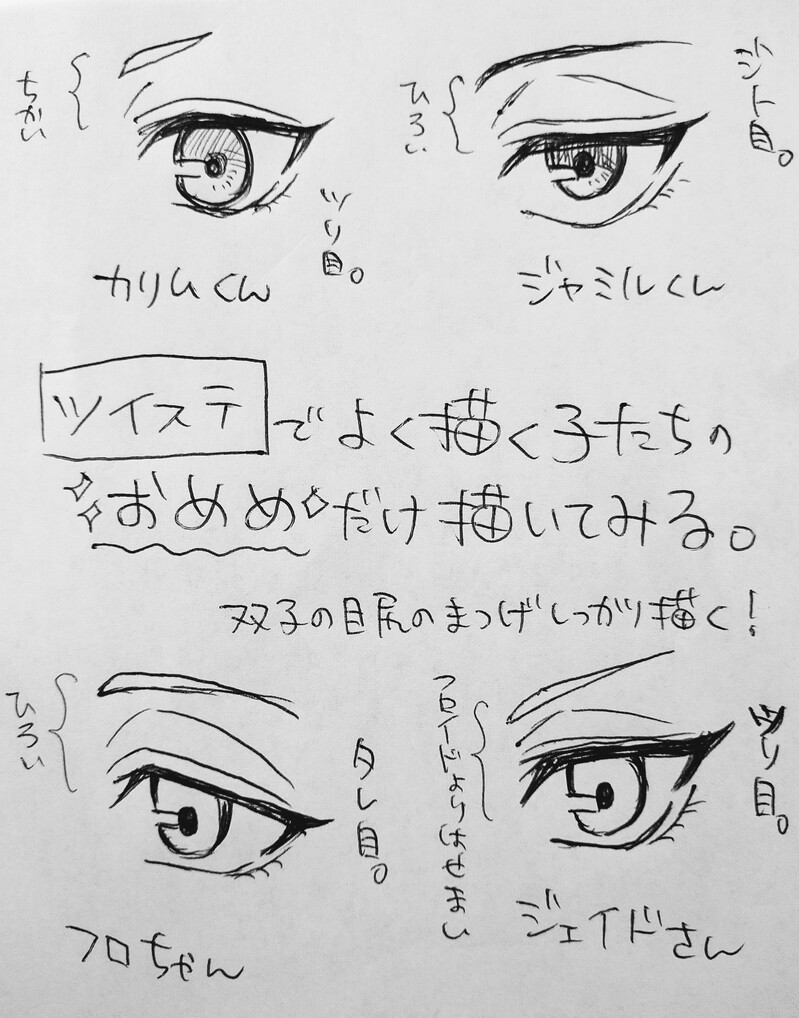 ちかい
ツリ目。
カリムくん
ひろい
ジト目。
ジャミルくん
ツイステでよく描く子たちの
おめめだけ描いてみる。
双子の目尻のまつげしっかり描く!
ひろい
タレ目。
フロちゃん
フロイドよりはせまい
ツリ目。
ジェイドさん